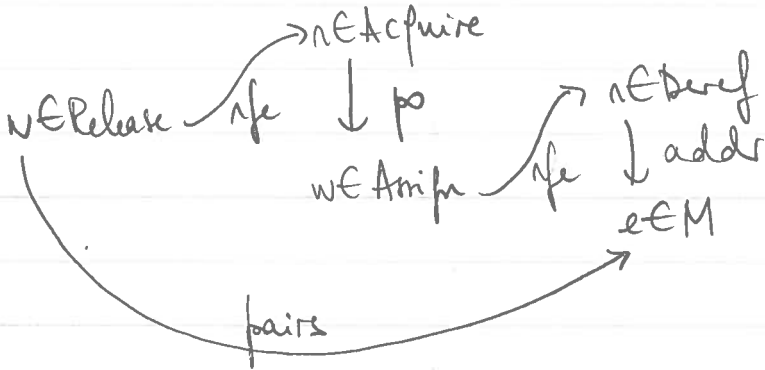 r∈Acquire
w∈Release rfe po r∈Deref
w∈Assign rfe addr
e∈M
pairs